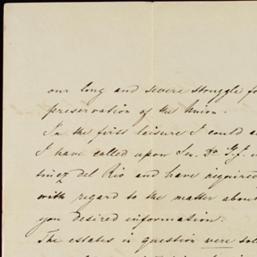 our long and severe struggle fo
preservation of the Union.
In the first leisure I could a
I have called upon Sen. Dn. F. J.
tinez del Rio and have required
with regard to the matter about
you desired information.
The estates in question were sol